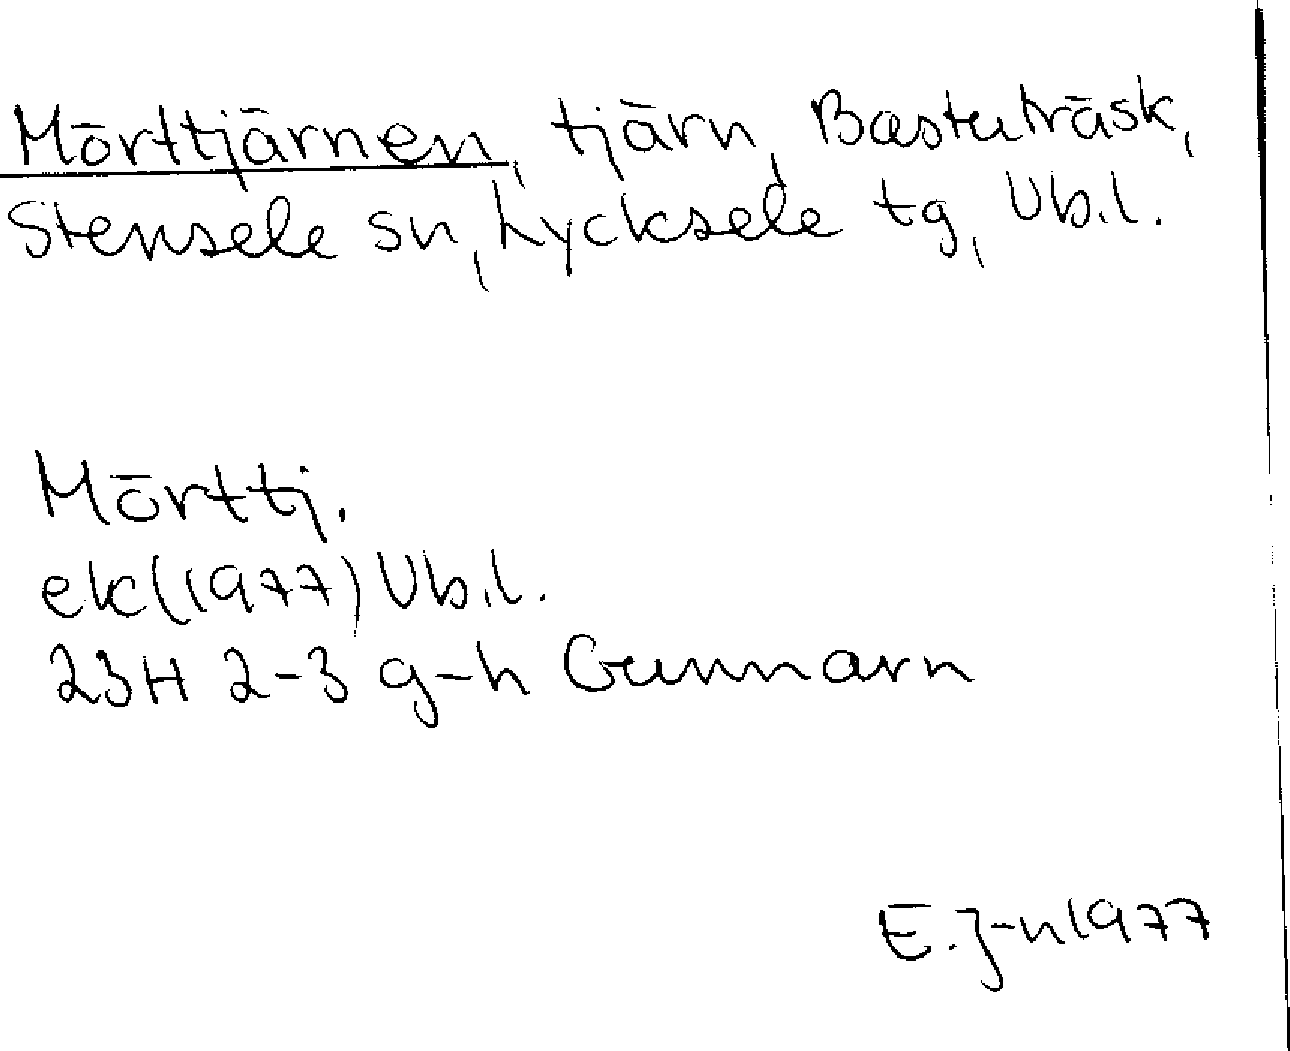 Mörttjärnen, tjärn, Bastuträsk,
Stensele sn, Lycksele tg, Vb.l.
Mörttj.
ek(1977) Vb.l.
23H 2-3 g-h Gunnarn
E.J-n 1977